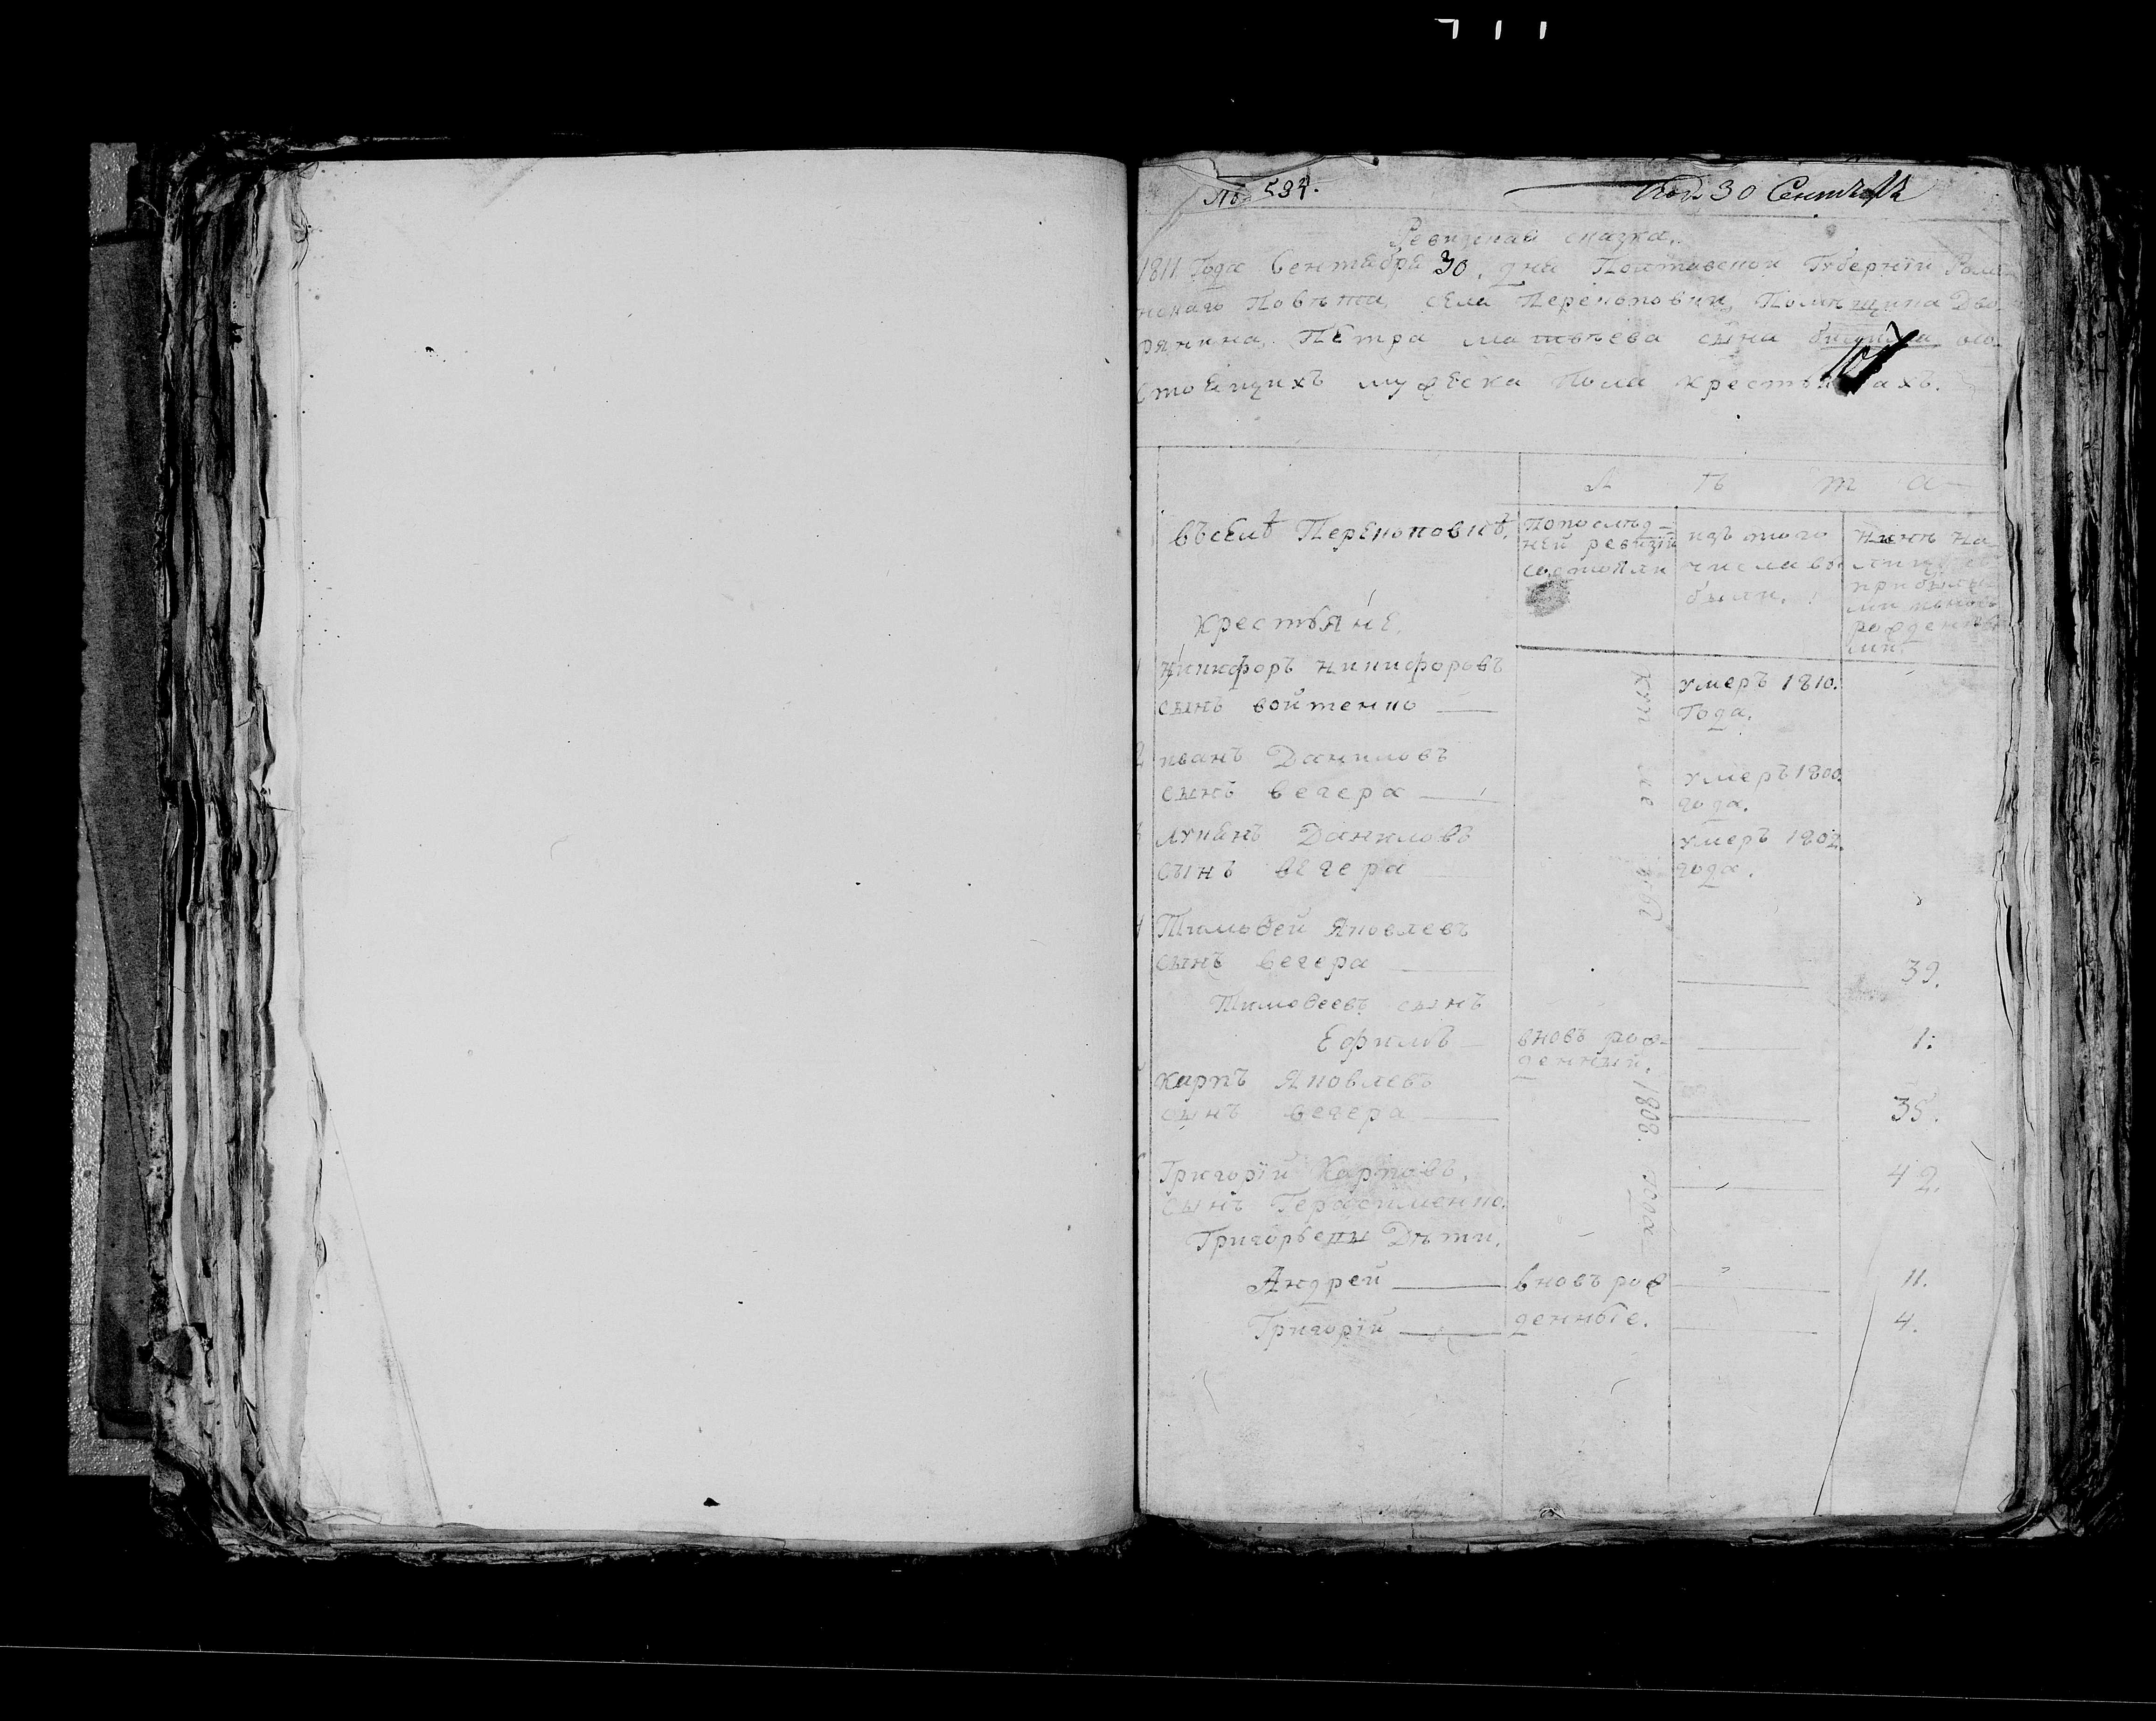 № 534.
30 Сентября
Ревизская сказка.
1811 Года Сентября 30, дня Полтавской Губерніи Роме-
нскаго Повѣта, села Перекоповки, Помѣщика Дво-
рянина, Петра Матвѣева сына о со-
стоящихъ мужеска пола крестьянахъ.
Л ѣ т а
въ селѣ Перекоповкѣ.
По послѣд-
ней ревизіи
состояли
изъ того
числа вы
были.
Нынѣ на
лицо съ
прибылы
ми и вновь
рожденны
ми.
Крестьяне.
1 Никифоръ Никифоровъ
сынъ Войтенко
умеръ 1810.
Года.
2 иванъ Даниловъ
сынъ Вечера
умеръ 1800.
года.
3 Лукянъ Даниловъ
сынъ Вечера
умеръ 1802.
года.
4 Тимоѳей Яковлевъ
сынъ Вечера 39.
Тимоѳеевъ сынъ
Ефимъ вновь рож- 1:
денный.
Карпъ Яковлевъ
сынъ Вечера 35.
1808. года
Григорій Карповъ, 42.
сынъ Герасименко.
Григорьевы Дѣти.
Андрей вновь рож 11.
Григорій денные. 4.